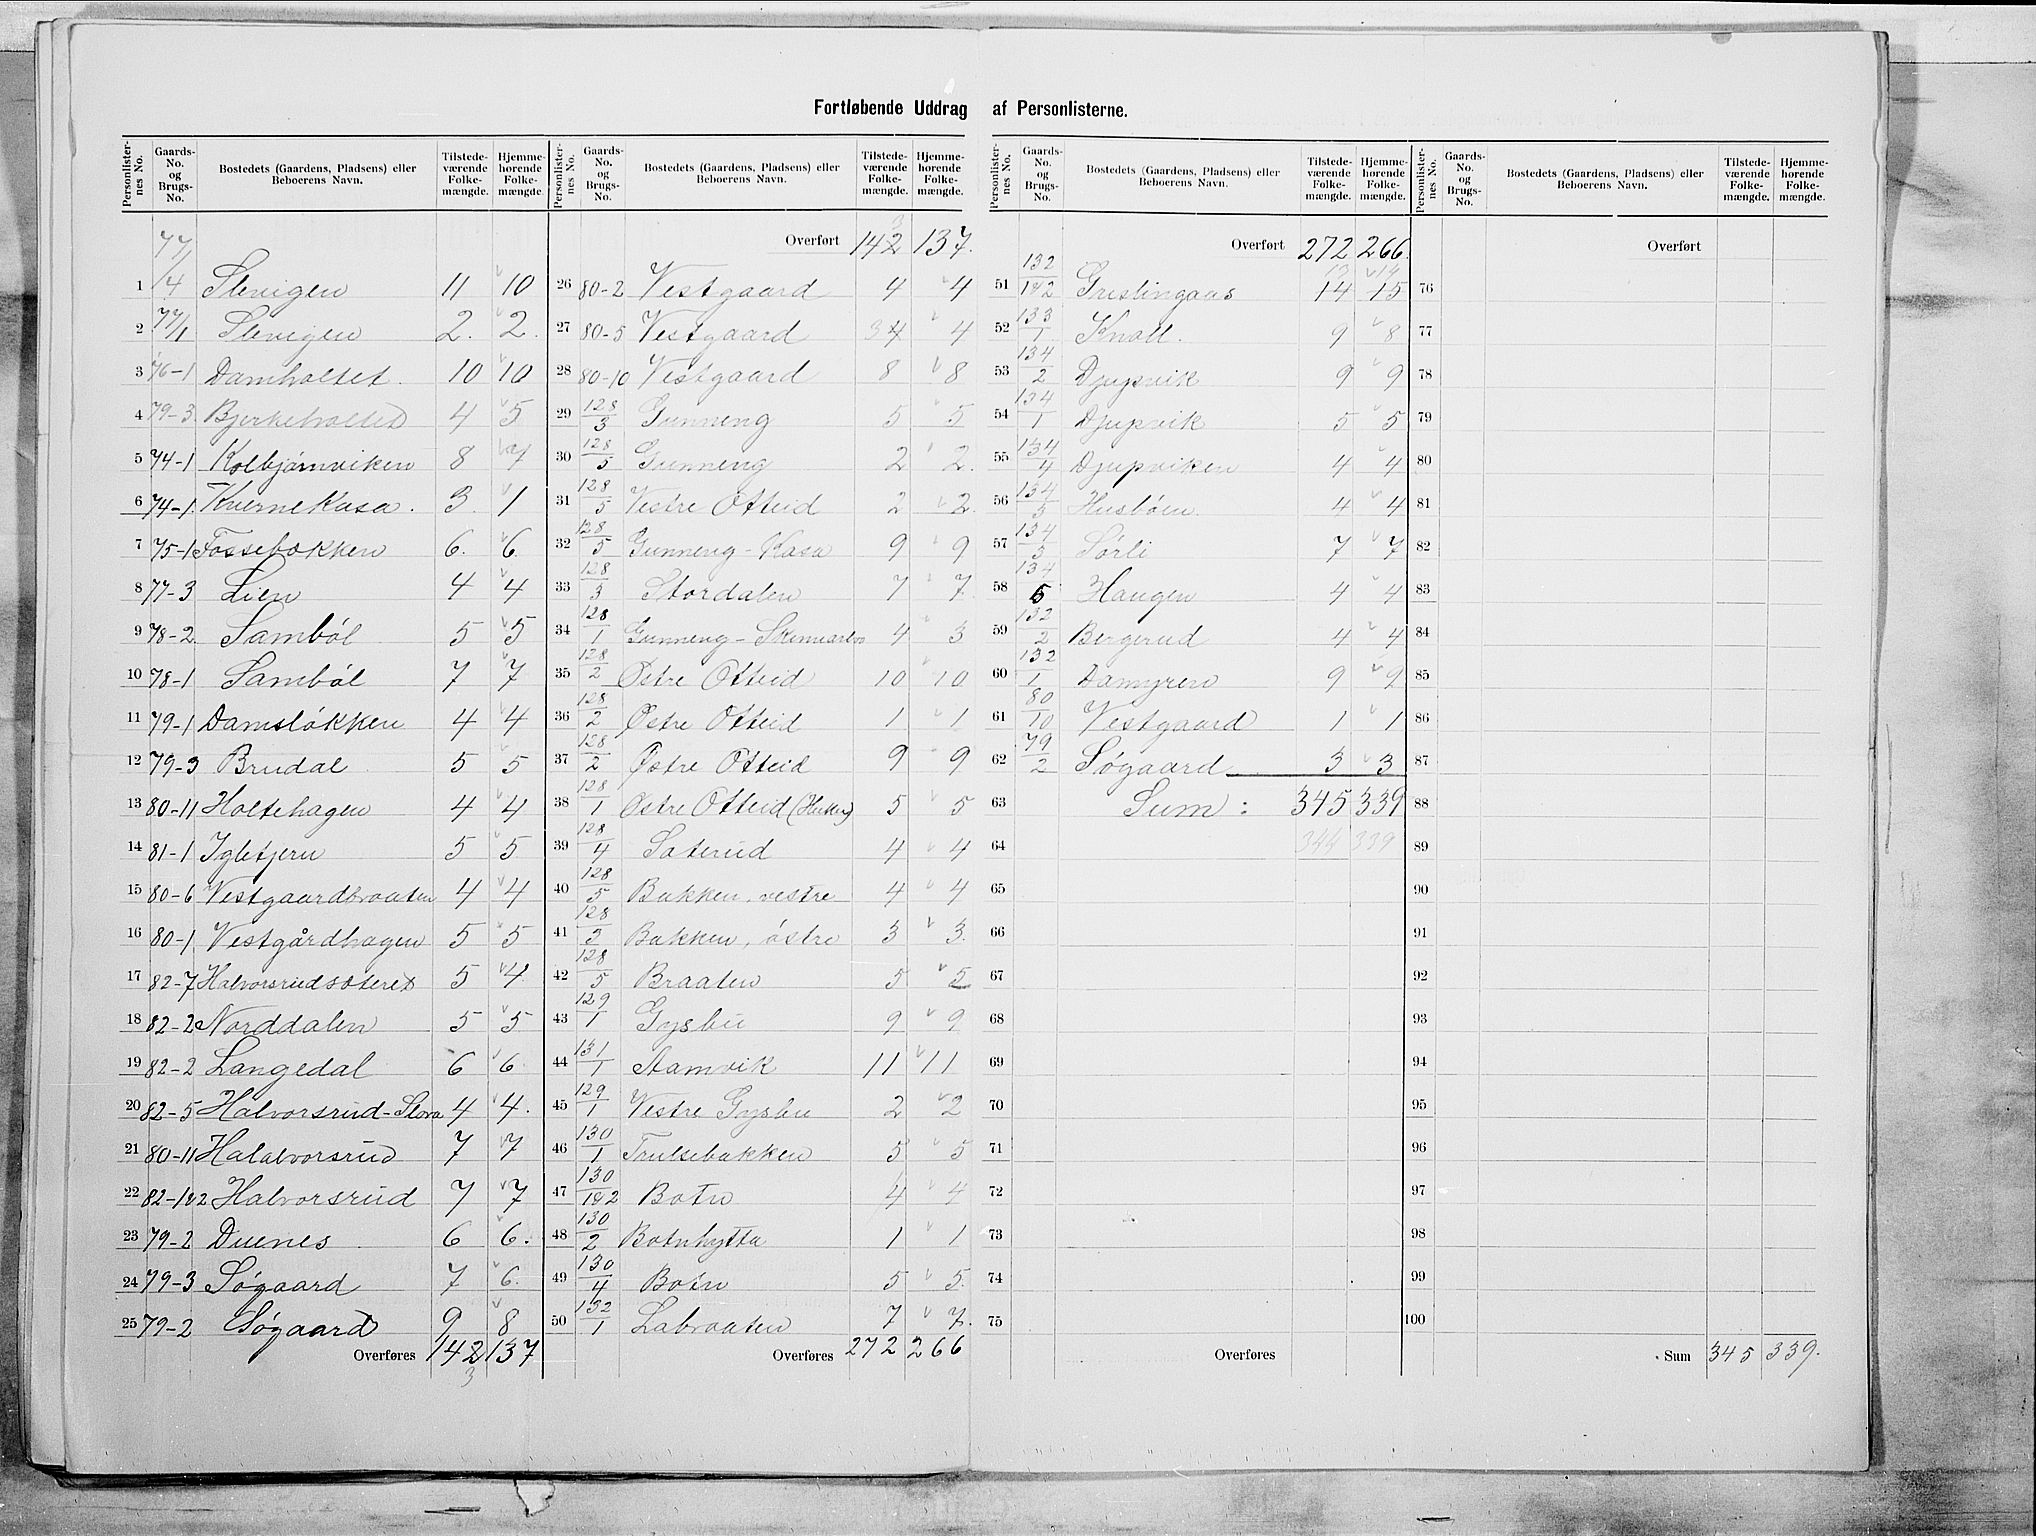 Fortløbende Uddrag af Personlisterne.
Personlister-nes No. | Gaards-No. og Brugs-No. | Bostedets (Gaardens, Pladsens) eller Beboerens Navn. | Tilstede-værende Folke-mængde. | Hjemme-hørende Folke-mængde.
1 77/4 Slevigen 11 10
2 77/1 Slevigen 2. 2.
3 76-1 Damholtet. 10 10
4 79-3 Bjerkeholtet 4 5
5 74-1 Kolbjørnviken 8 7
6 74-1. Kvernekasa. 3. 1
7 75-1 Fossebækken 6. 6.
8 77-3 Lien 4 4
9 78-2. Sambøl 5 5
10 78-1 Sambøl 7 7
11 79-1 Damsløkken 4 4
12 79-3 Brudal 5 5
13 80-11 Holtehagen 4 4
14 81-1 Igletjern 5 5
15 80-6 Vestgaardbraaten 4 4
16 80-1 Vestgårdhagen 5 5
17 82-7 Halvorsrudsæteret 5 4
18 82-2 Norddalen 5 5
19 82-2 Langedal 6 6
20 82-5 Halvorsrud-Slora 4 4.
21 80-11 Halalvorsrud 7 7
22 82-1&2 Halvorsrud 7 7
23 79-2 Duenes 6 6.
24 79-3 Søgaard 7 6.
25 79-2 Søgaard 9 8
Overføres 142 137
3
Personlister-nes No. | Gaards-No. og Brugs-No. | Bostedets (Gaardens, Pladsens) eller Beboerens Navn. | Tilstede-værende Folke-mængde. | Hjemme-hørende Folke-mængde.
3
Overført 142 137.
26 80-2 Vestgaard 4 4
27 80-5 Vestgaard 3 4 4
28 80-10 Vestgaard 8 8
29 128/3 Gunneng 5 5
30 128/5 Gunneng 2 2.
31 128/5 Vestre Otteid 2 2.
32 128/5 Gunneng-Kasa 9 9
33 128/3 Stordalen 7 7
34 128/1 Gunneng- 4 3
35 128/2 Østre Otteid 10 10
36 128/2 Østre Otteid 1 1
37 128/2 Østre Otteid 9 9
38 128/1 Østre Otteid 5 5
39 128/4 Sæterud 4 4
40 128/5 Bakken, vestre 4 4
41 128/2 Bakken, østre 3 3.
42 128/5 Braaten 5 5
43 129/1 Gysbu 9 9
44 131/1 Aamvik 11 11
45 129/1 Vestre Gysbu 2 2
46 130/1 Trulsebakken 5 5
47 130/1&2 Botn 4 4
48 130/2 Botnhytta 1 1
49 130/4 Botn 5 5.
50 132/1 Labraaten 7 7.
Overføres 272 266
Personlister-nes No. | Gaards-No. og Brugs-No. | Bostedets (Gaardens, Pladsens) eller Beboerens Navn. | Tilstede-værende Folke-mængde. | Hjemme-hørende Folke-mængde.
Overført 272 266.
13 14
51 132/1&2 Grislingaas 14 15
52 133/1 Knoll. 9 8
53 134/2 Djupvik 9 9
54 134/1 Djupvik 5 5
55 134/4 Djupviken 4 4
56 134/5 Husbøen. 4 4
57 134/3 Sørli 7 7
58 134/6 Haugen 4 4
59 132/2 Bergerud 4 4
60 132/1 Damyren 9 9
61 80/10 Vestgaard 1 1
62 79/2 Søgaard 3 3
63 Sum: 345 339
64 344 339
65
66
67
68
69
70
71
72
73
74
75
Overføres
Personlister-nes No. | Gaards-No. og Brugs-No. | Bostedets (Gaardens, Pladsens) eller Beboerens Navn. | Tilstede-værende Folke-mængde. | Hjemme-hørende Folke-mængde.
Overført
76
77
78
79
80
81
82
83
84
85
86
87
88
89
90
91
92
93
94
95
96
97
98
99
100
Sum 345 339.